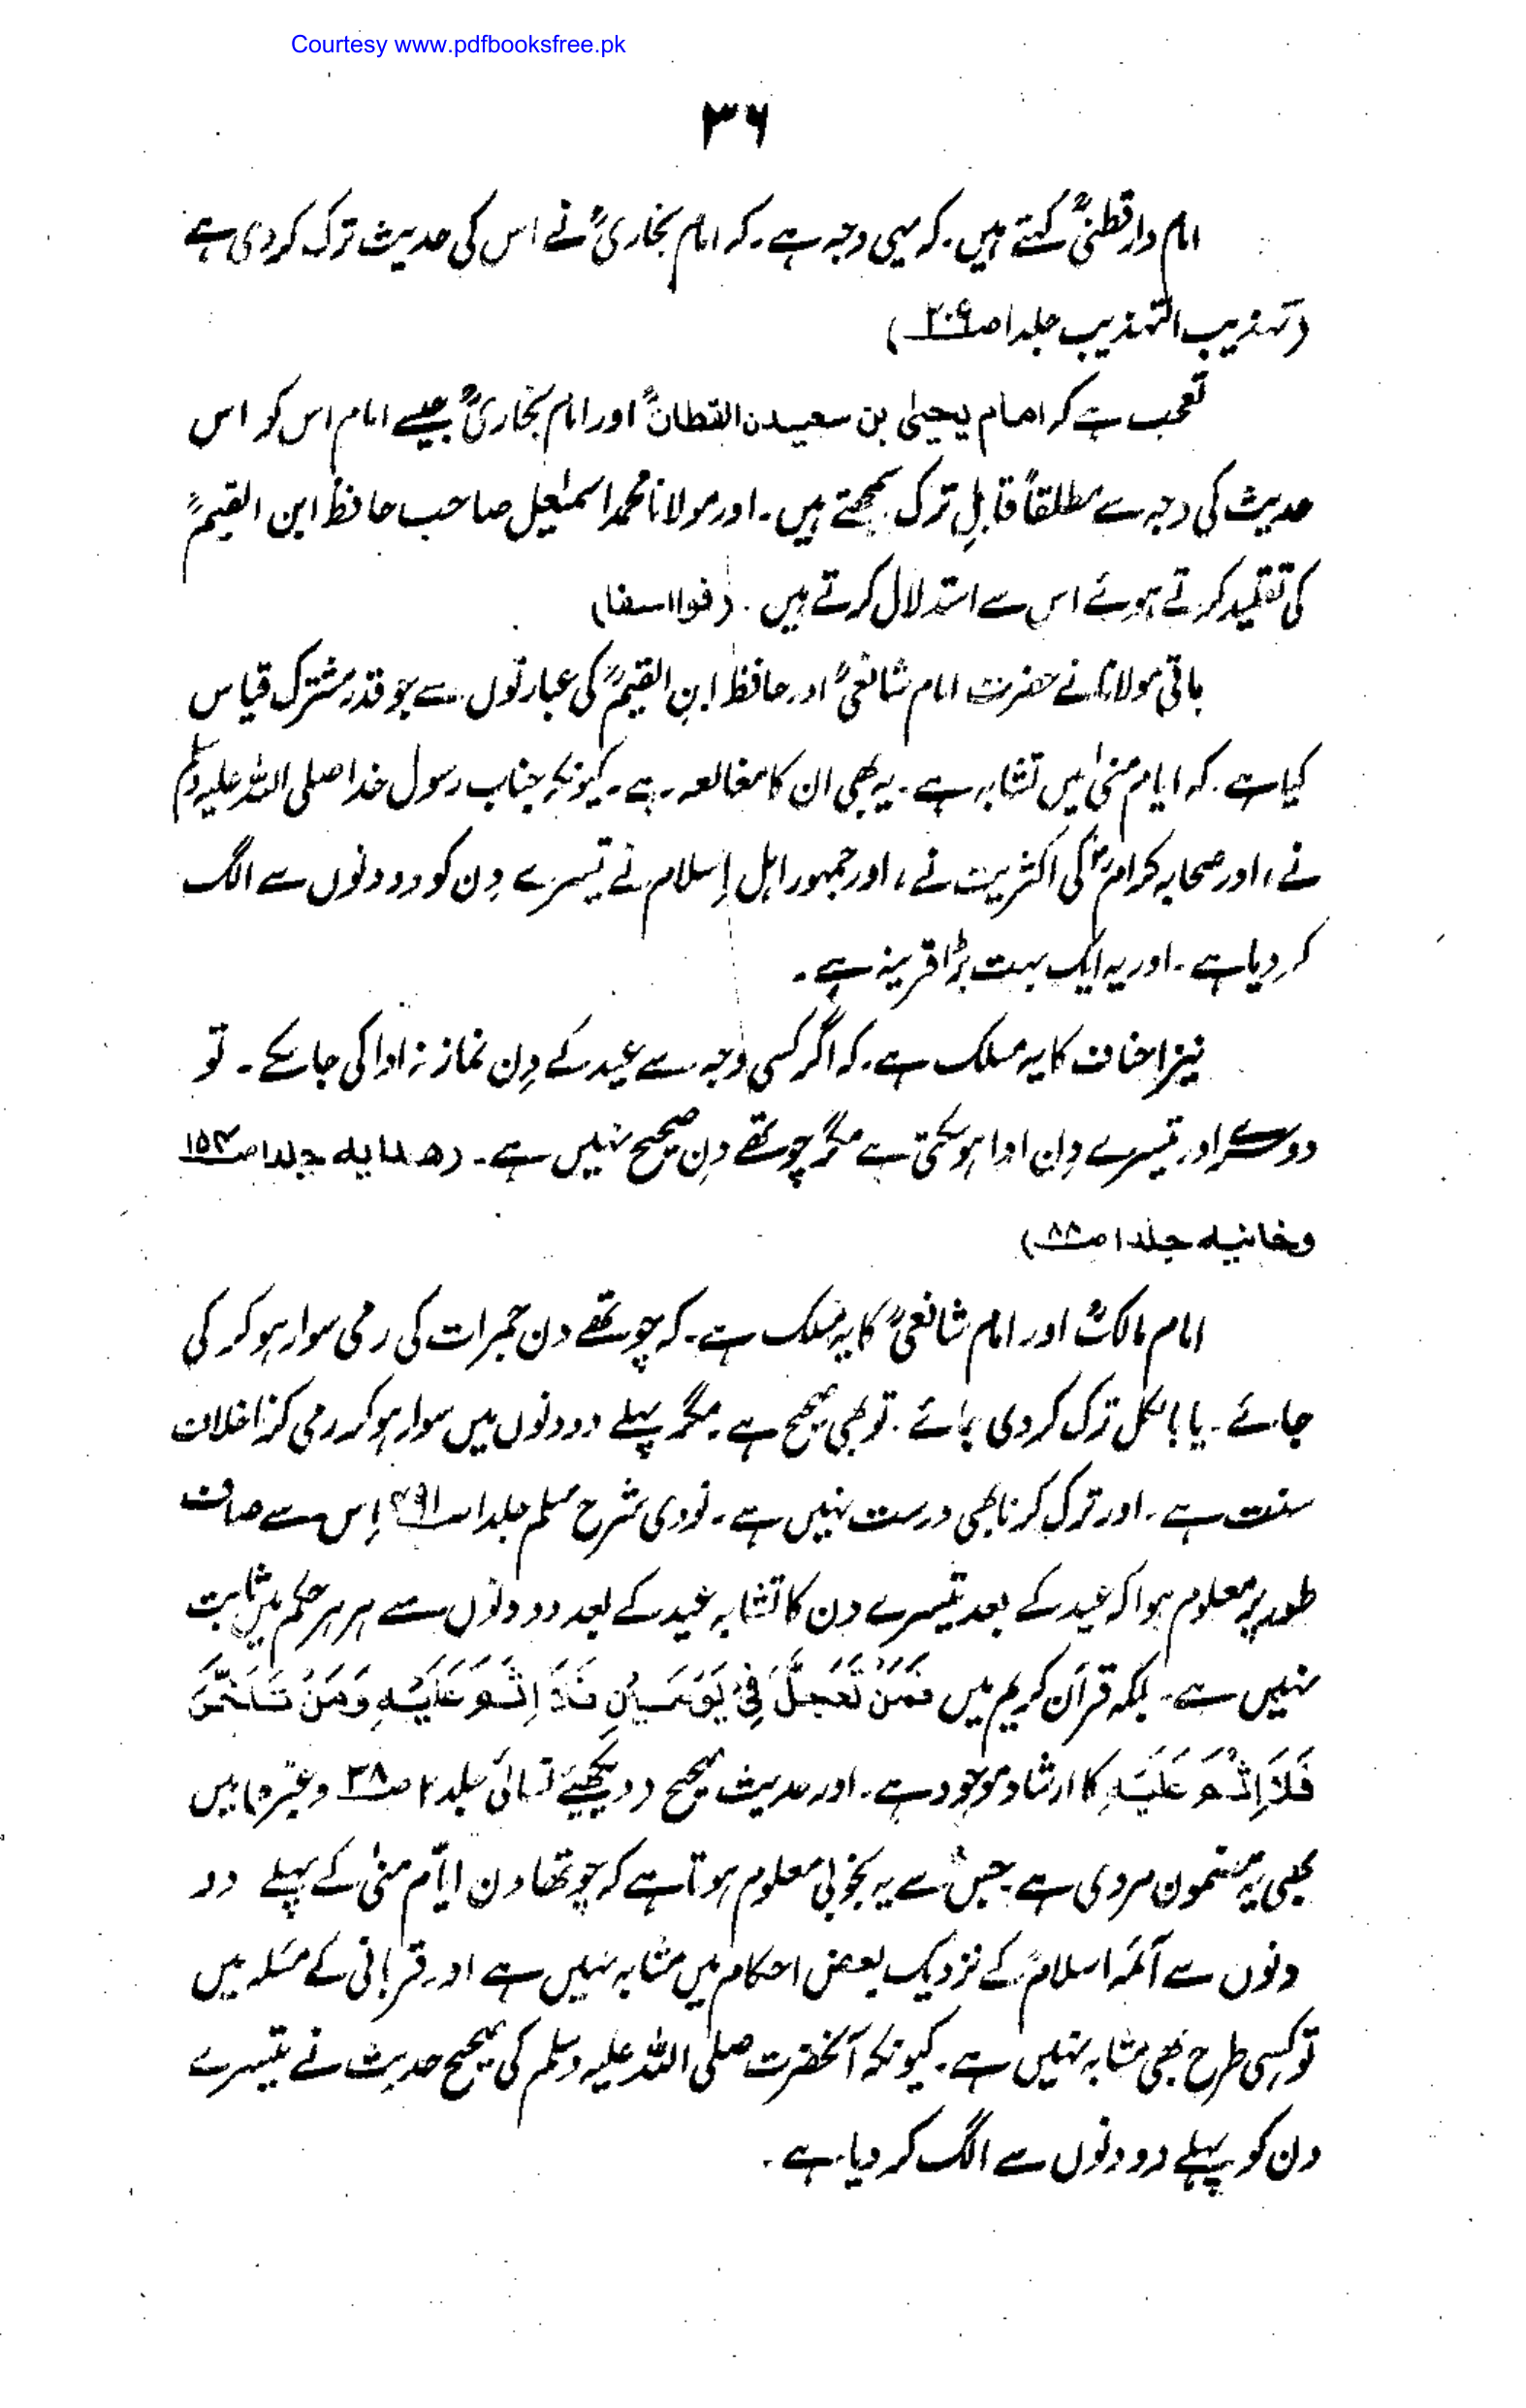 Courtesy www.pdfbooksfree.pk
۳۶
امام دارقطنیؒ کہتے ہیں۔ کہ یہی وجہ ہے۔ کہ امام بخاریؒ نے اس کی حدیث ترک کر دی ہے
(تہذیب التہذیب جلد ۱ صـ۲۰۹)
تعجب ہے کہ امام یحییٰ بن سعیدن القطانؒ اور امام بخاریؒ جیسے امام اس کو اس
حدیث کی وجہ سے مطلقاً قابلِ ترک سمجھتے ہیں۔ اور مولانا محمد اسمٰعیل صاحب حافظ ابن القیمؒ
کی تقلید کرتے ہوئے اس سے استدلال کرتے ہیں۔ (فوا اسفا)
باقی مولانا نے حضرت امام شافعیؒ اور حافظ ابن القیمؒ کی عبارتوں سے جو قدر مشترک قیاس
کیا ہے۔ کہ ایام منیٰ میں تشابہ ہے۔ یہ بھی ان کا مغالطہ ہے۔ کیونکہ جناب رسول خدا صلی اللہ علیہ وسلم
نے، اور صحابہ کرامؓ کی اکثریت نے، اور جمہور اہل اِسلام نے تیسرے دِن کو دو دنوں سے الگ
کر دیا ہے۔ اور یہ ایک بہت بڑا قرینہ ہے۔
نیز احناف کا یہ مسلک ہے۔ کہ اگر کسی وجہ سے عید کے دِن نماز نہ ادا کی جا سکے۔ تو
دوسرے اور تیسرے دِن ادا ہو سکتی ہے مگر چوتھے دِن صحیح نہیں ہے۔ (ھدایہ جلد ۱ صـ۱۵۴
وخانیہ جلد ۱ صـ۸۸)
امام مالکؒ اور امام شافعیؒ کا یہ مسلک ہے۔ کہ چوتھے دن جمرات کی رمی سوار ہو کر کی
جائے۔ یا بالکل ترک کر دی جائے۔ تو بھی صحیح ہے۔ مگر پہلے دو دنوں میں سوار ہو کر رمی کرنا خلاف
سنت ہے۔ اور ترک کرنا بھی درست نہیں ہے۔ نووی شرح مسلم جلد ۱ صـ۲۹۱ اِس سے صاف
طور پر معلوم ہوا کہ عید کے بعد تیسرے دن کا تشابہ عید کے بعد دو دنوں سے ہر ہر حکم میں ثابت
نہیں ہے۔ بلکہ قرآن کریم میں فَمَنْ تَعَجَّلَ فِیْ یَوْمَیْنِ فَلَا اِثْمَ عَلَیْہِ وَمَنْ تَاَخَّرَ
فَلَا اِثْمَ عَلَیْہِ کا ارشاد موجود ہے۔ اور حدیث صحیح (دیکھئے نسائی جلد ۲ صـ۳۸ وغیرہ) میں
بھی یہ مضمون مروی ہے جس سے یہ بخوبی معلوم ہوتا ہے کہ چوتھا دن ایّام منیٰ کے پہلے دو
دنوں سے آئمہ اسلامؒ کے نزدیک بعض احکام میں مشابہ نہیں ہے اور قربانی کے مسئلہ میں
تو کسِی طرح بھی مشابہ نہیں ہے۔ کیونکہ آنحضرت صلی اللہ علیہ وسلم کی صحیح حدیث نے تیسرے
دن کو پہلے دو دنوں سے الگ کر دیا ہے۔